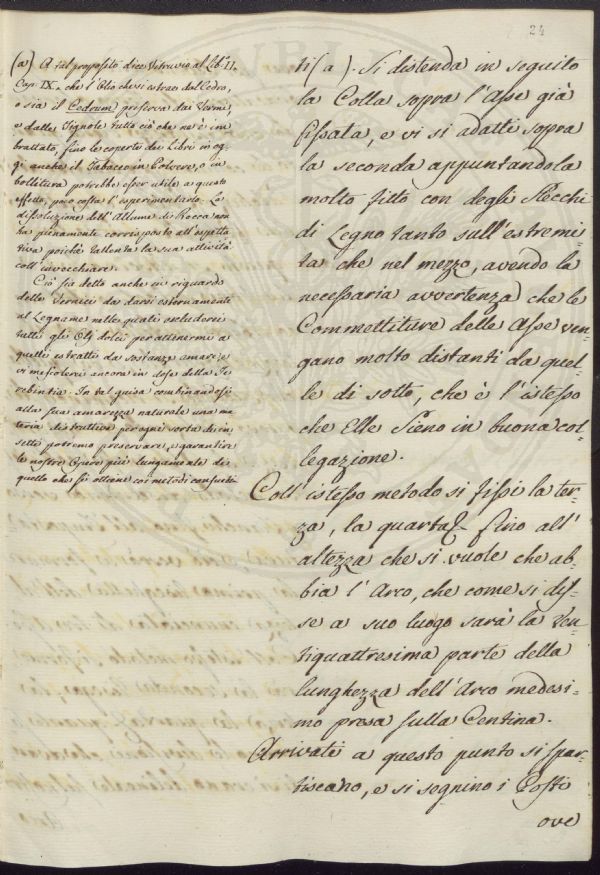 24
(a) A tal proposito dice Vetruvio al Lib.o II.
Cap. IX. che l'Olio che si estrae dal Cedro,
o sia il Cedrum preserva dai Vermi,
e dalle Tignole tutto ciò che ne è im
brattato, fino le coperte dei Libri in og-
gi anche il Tabacco in Polvere, o in
bollitura potrebbe esser utile a questo
effetto, poco costa l'esperimentarlo. La
dissoluzione dell'Allume di Rocca non
ha pienamente corrisposto all'aspetta
tiva poichè rallenta la sua attività
coll'invecchiare.
Ciò sia detto anche in riguardo
delle Vernici da darsi esternamente
al Legname nelle quali escluderei
tutti gli Olj dolci per attenermi a
quelli estratti da sostanze amare, e
vi mescolerei ancora in dose della Te
rebintia. In tal guisa combinandosi
alla sua amarezza naturale una ma
teria distruttiva per ogni sorta di in
setti potremo preservare, e garantire
le nostre Opere più lungamente di
quello che si ottiene coi metodi consueti.
ti (a). Si distenda in seguito
la Colla sopra l'Asse già
fissata, e vi si adatti sopra
la seconda appuntandola
molto fitto con degli Stecchi
di Legno tanto sull'estremi-
tà che nel mezzo, avendo la
necessaria avvertenza che le
Commettiture delle Asse ven-
gano molto distanti da quel-
le di sotto, che è l'istesso
che Elle sieno in buona col-
legazione.
Coll'istesso metodo si fissi la ter-
za, la quarta & fino all'
altezza che si vuole che ab-
bia l'Arco, che come si dis-
se a suo luogo sarà la Ven-
tiquattresima parte della
lunghezza dell'Arco medesi-
mo presa sulla Centina.
Arrivati a questo punto si spar-
tiscano, e si segnino i Posti
ove